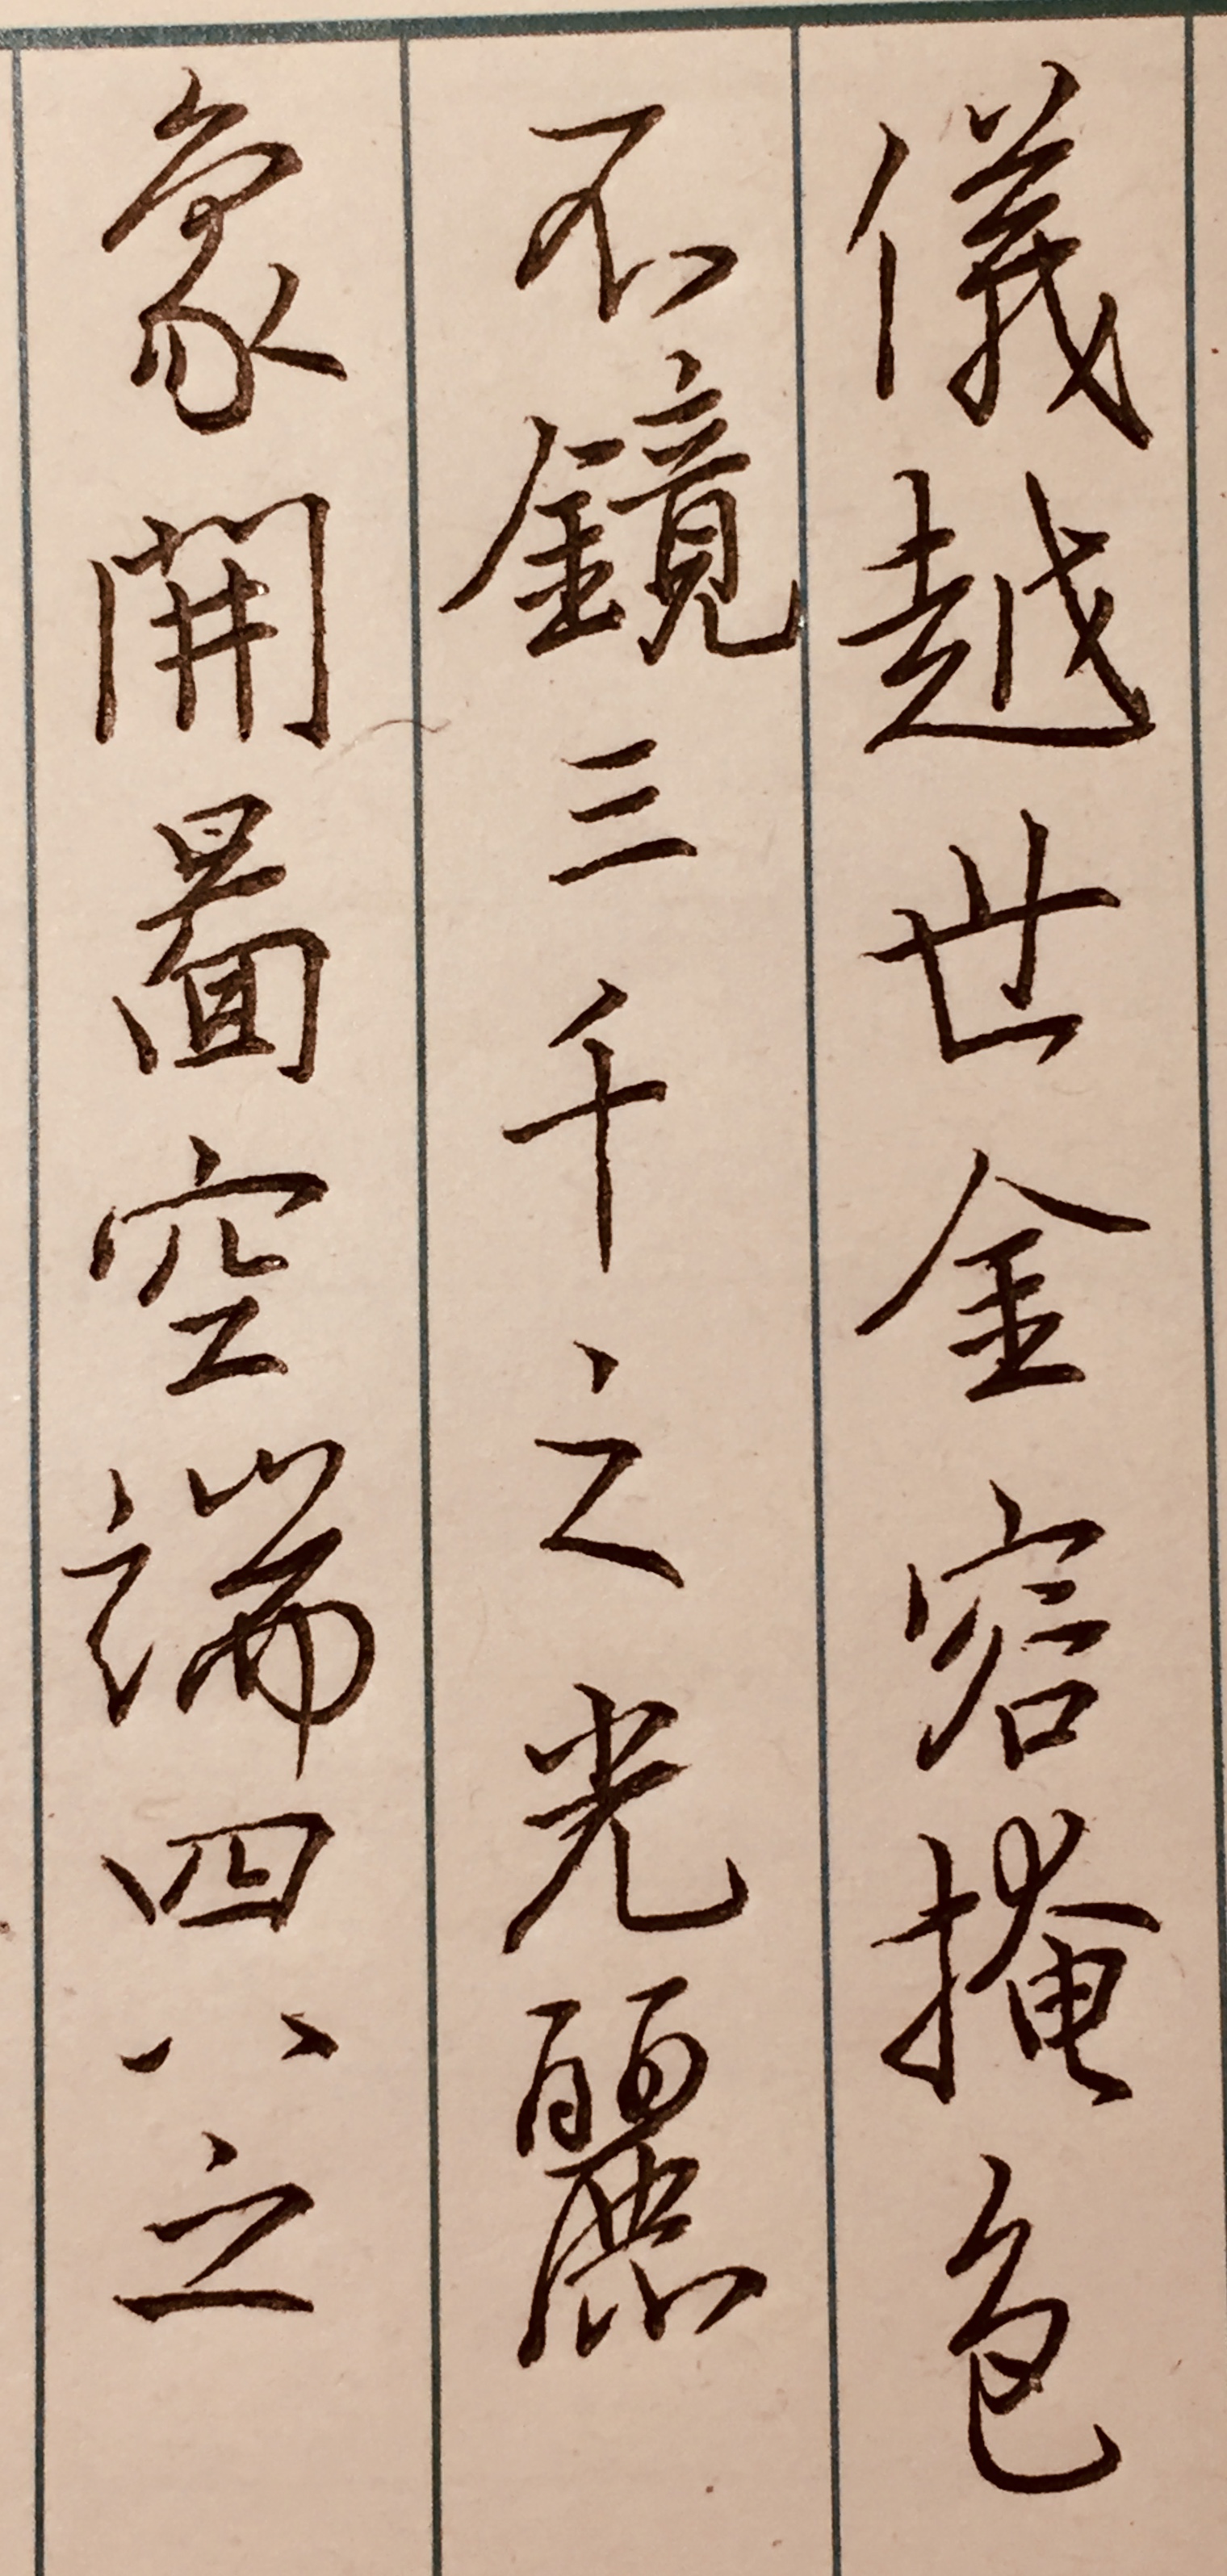 儀越世金容掩色
不鏡三千之光麗
象開圖空端四八之